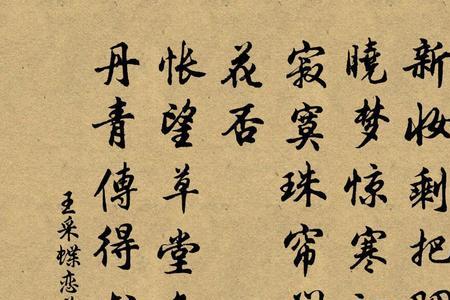 新妆剩把
曉梦惊寒
寂寞珠帘
花否
怅望草堂
丹青傳得
王采蝶恋